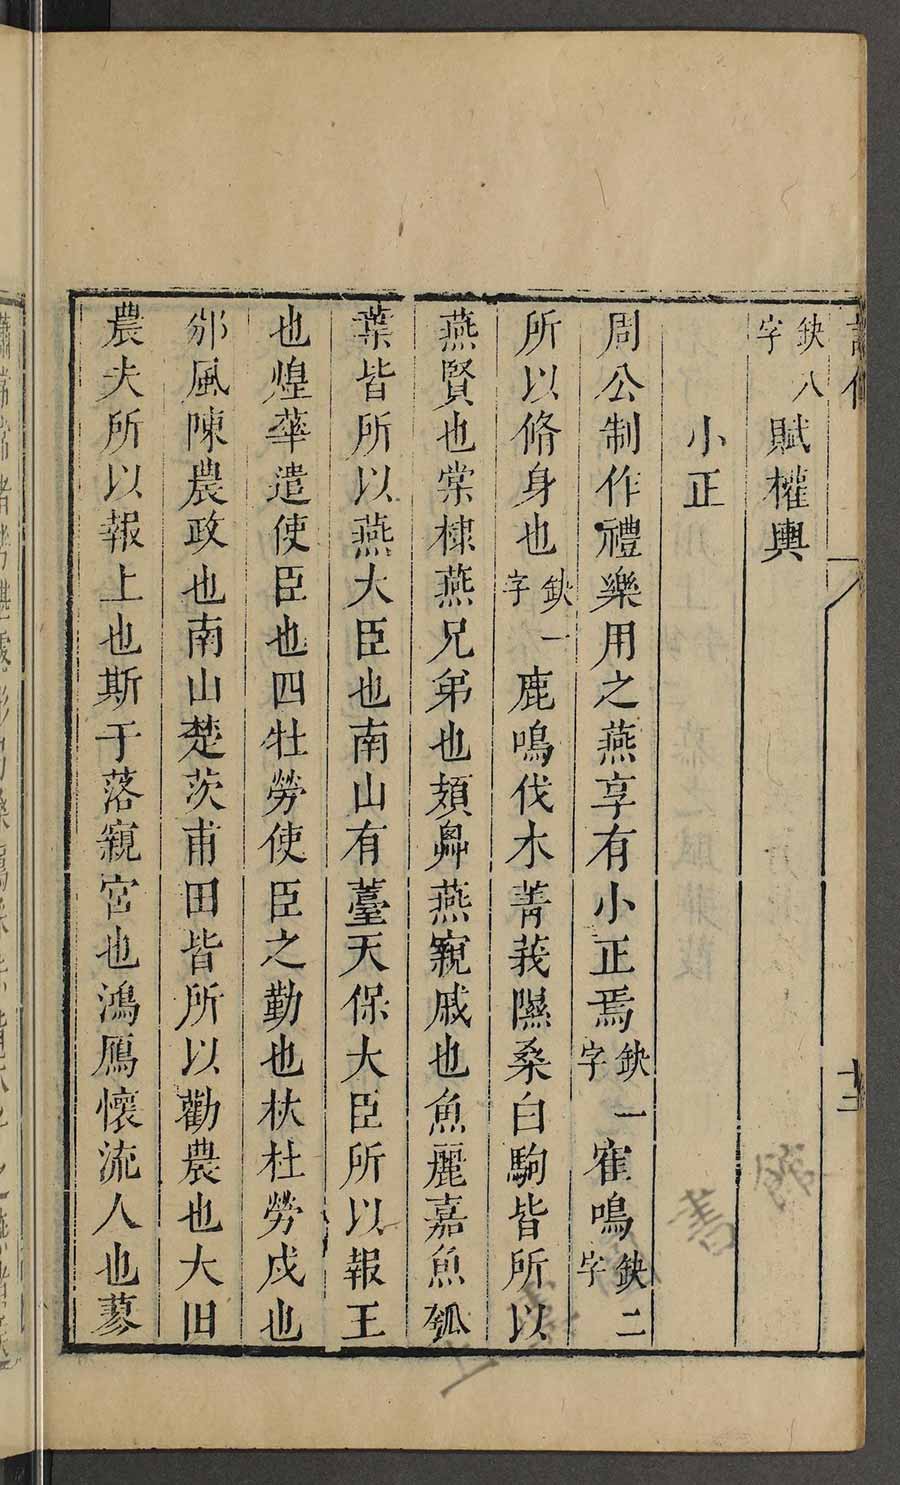 缺八字賦權輿
小正
周公制作禮樂用之燕享有小正焉缺一字寉鳴缺二字
所以脩身也缺一字鹿鳴伐木菁莪隰桑白駒皆所以
燕賢也棠棣燕兄弟也頍弁燕寴戚也魚麗嘉魚瓠
葉皆所以燕大臣也南山有薹天保大臣所以報王
也煌華遣使臣也四牡勞使臣之勤也杕杜勞戍也
邠風陳農政也南山楚茨甫田皆所以勸農也大田
農夫所以報上也斯干落寴宮也鴻鴈懷流人也蓼